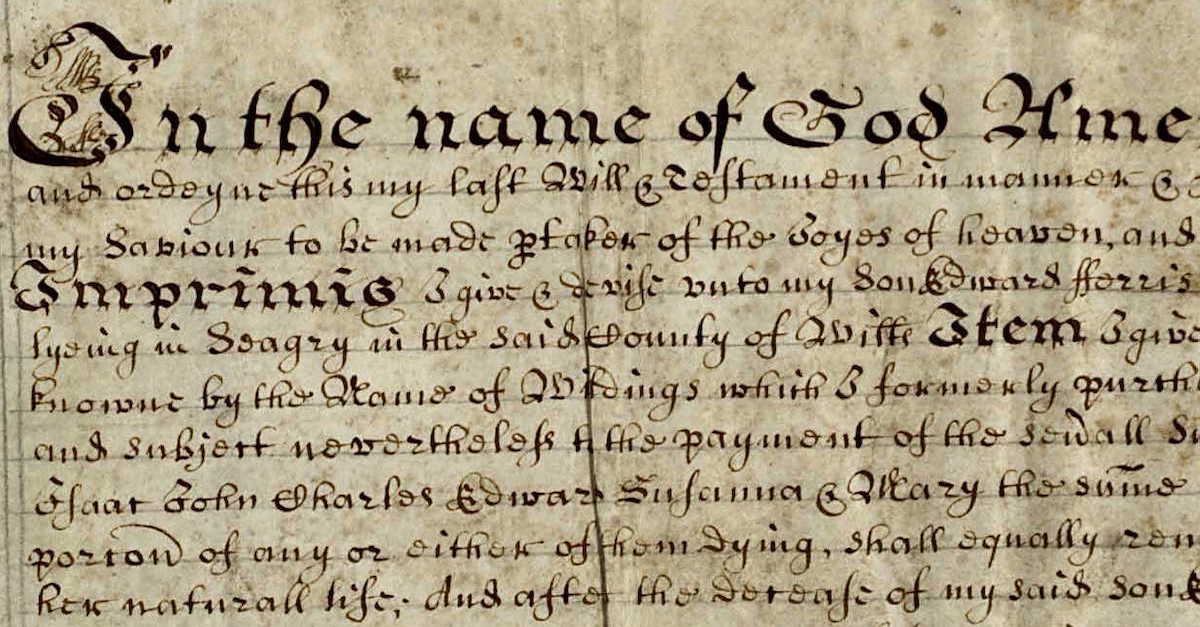 In the name of God Ame
and ordeyne this my last Will & Testament in manner &
my Saviour to be made ptaker of the Joyes of heaven, and
Imprimis I give & devise unto my son Edward fferris
lyeing in Seagry in the said County of Wilts Item I give
knowne by the Name of which I formerly purch
and subject nevertheless to the payment of the sevall Su
Isaac John Charles Edward Susanna & Mary the sum̄e
porcon̄ of any or either of them dying, shall equally rem
her naturall life; And after the decease of my said son E